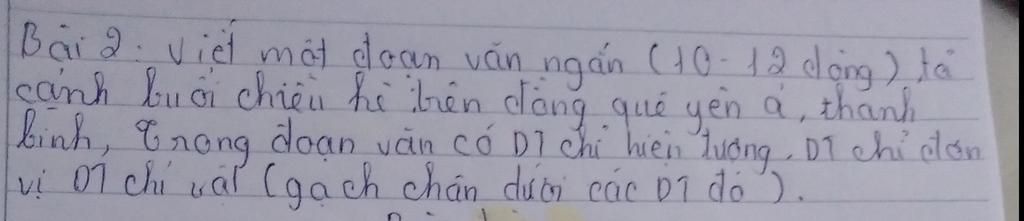 Bài 2. Viết một đoạn văn ngắn (10-12 dòng) tả
cảnh buổi chiều hè trên đồng quê yên ả, thanh
bình, trong đoạn văn có DT chỉ hiện tượng, DT chỉ đơn
vị DT chỉ vật (gạch chân dưới các DT đó).